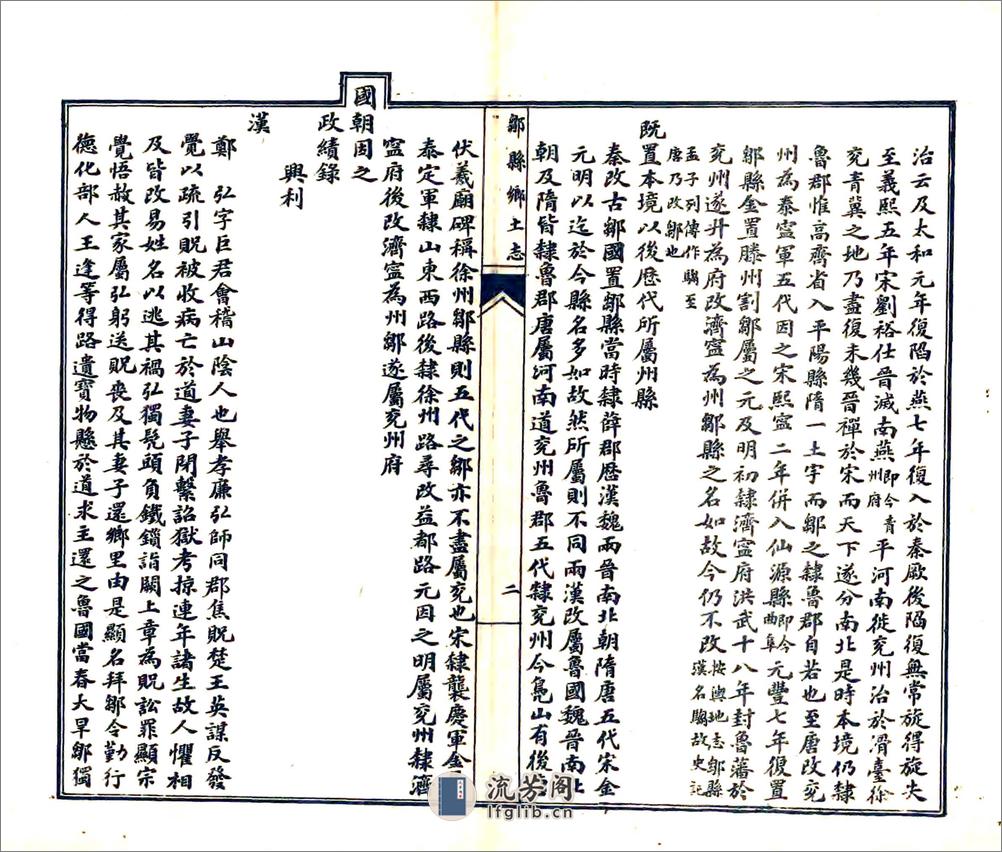 治云及太和元年復陷於燕七年復入於秦厥後陷復無常旋得旋失
至義熙五年宋劉裕仕晉滅南燕即今青州府平河南徙兗州治於滑臺徐
兗青冀之地乃盡復未幾晉禪於宋而天下遂分南北是時本境仍隸
魯郡惟高齊省入平陽縣隋一土宇而鄒之隸魯郡自若也至唐改兗
州為泰寧軍五代因之宋熙寧二年併入仙源縣即今曲阜元豐七年復置
鄒縣金置滕州割鄒屬之元及明初隸濟寧府洪武十八年封魯藩於
兗州遂升為府改濟寧為州鄒縣之名如故今仍不改按輿地志鄒縣漢名騶故史記
孟子列傳作騶至唐乃改鄒也
既置本境以後歷代所屬州縣
秦改古鄒國置鄒縣當時隸薛郡歷漢魏兩晉南北朝隋唐五代宋金
元明以迄於今縣名多如故然所屬則不同兩漢改屬魯國魏晉南北
朝及隋皆隸魯郡唐屬河南道兗州魯郡五代隸兗州今鳧山有後
鄒縣鄉土志
二
伏羲廟碑稱徐州鄒縣則五代之鄒亦不盡屬兗也宋隸襲慶軍金
泰定軍隸山東西路後隸徐州路尋改益都路元因之明屬兗州隸濟
寧府後改濟寧為州鄒遂屬兗州府
國朝因之
政績錄
興利
漢
鄭 弘字巨君會稽山陰人也舉孝廉弘師同郡焦貺楚王英謀反發
覺以疏引貺被收病亡於道妻子閉繫詔獄考掠連年諸生故人懼相
及皆改易姓名以逃其禍弘獨髡頭負鐵鑕詣闕上章為貺訟罪顯宗
覺悟赦其家屬弘躬送貺喪及其妻子還鄉里由是顯名拜鄒令勤行
德化部人王逢等得路遺寶物懸於道求主還之魯國當春大旱鄒獨
流芳阁
lfglib.cn